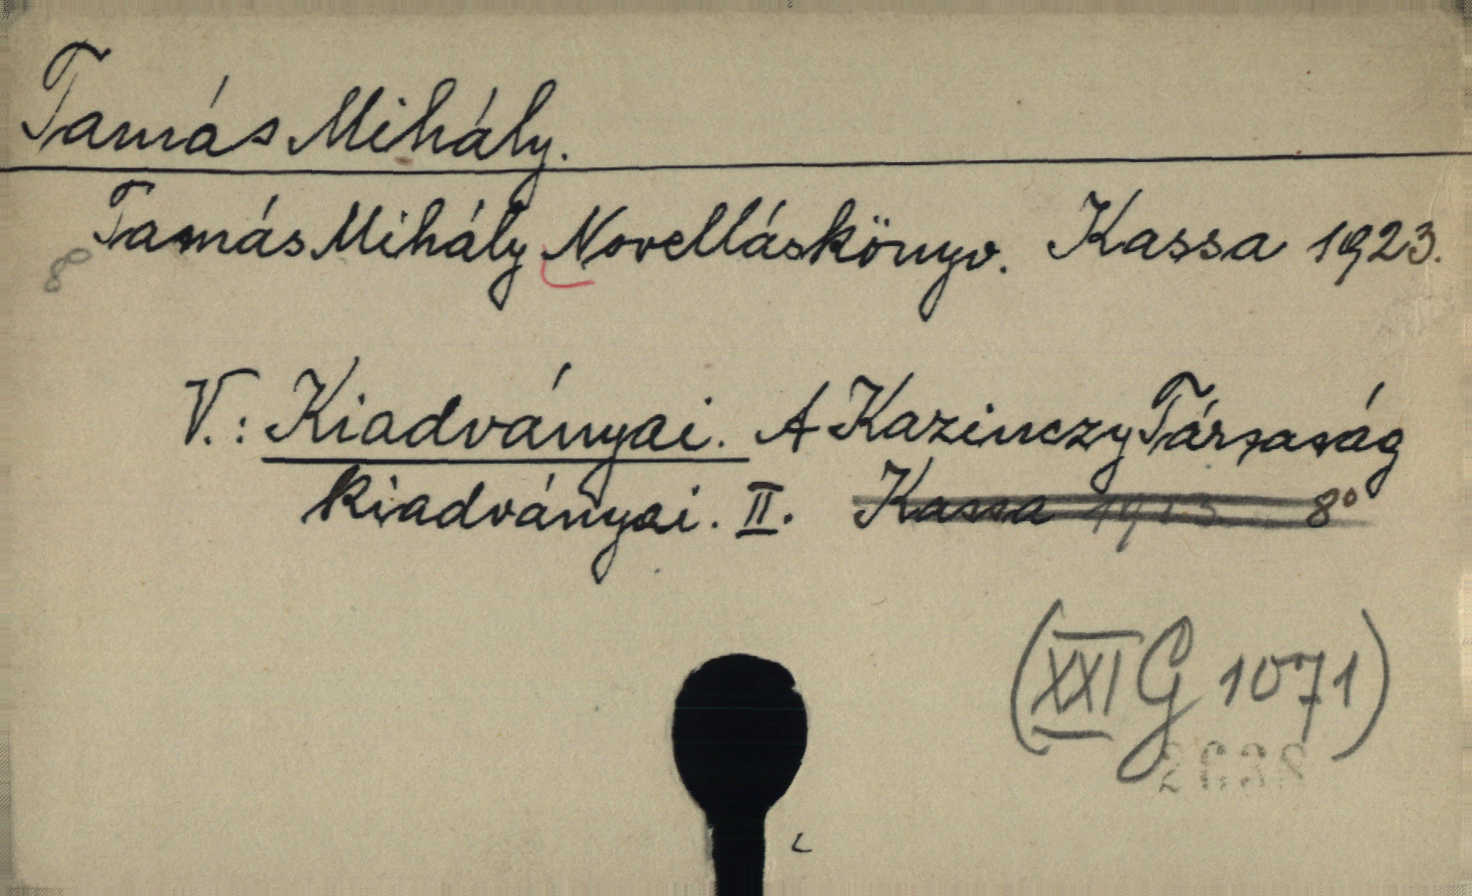 Tamás Mihály.
Tamás Mihály Novelláskönyv. Kassa 1923.
8°
V.: Kiadványai. A Kazinczy Társaság
kiadványai. II. Kassa 1923 8°
(XXI G 1071)